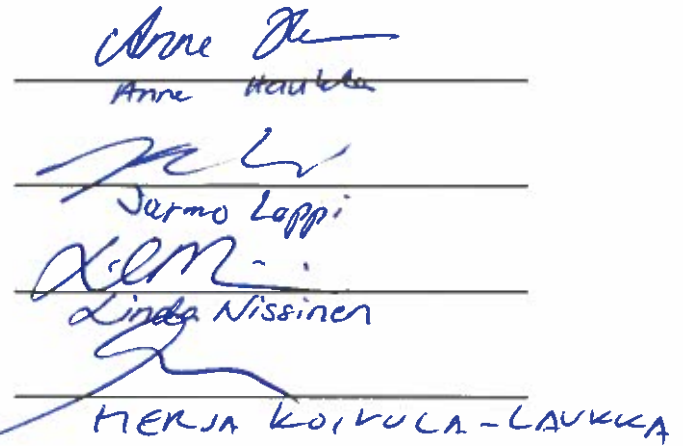 Anne
Anne Haukka
Jarmo Lappi
Linda Nissinen
MERJA KOIVULA-LAUKKA